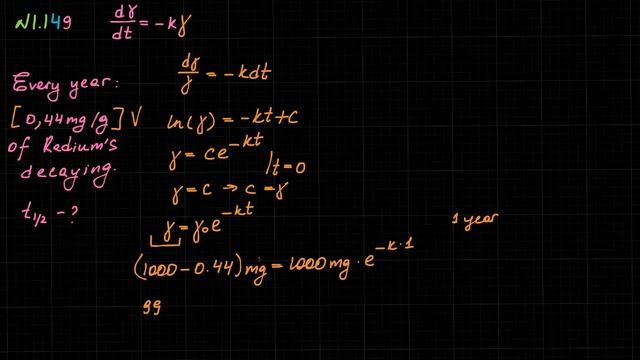 №1.149
dγ/dt = -kγ
Every year:
[0,44mg/g] V
of Radium's
decaying.
t1/2 - ?
dγ/γ = -kdt
ln(γ) = -kt+c
γ = ce^-kt /t=0
γ = c → c = γ
γ = γ₀e^-kt
1 year
(1000 - 0.44) mg = 1000mg · e^-k·1
99